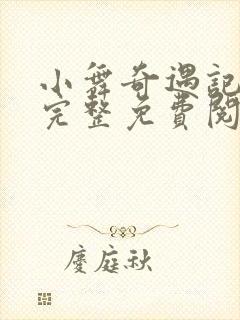 小舞奇遇記
完整免費閱
慶庭秋